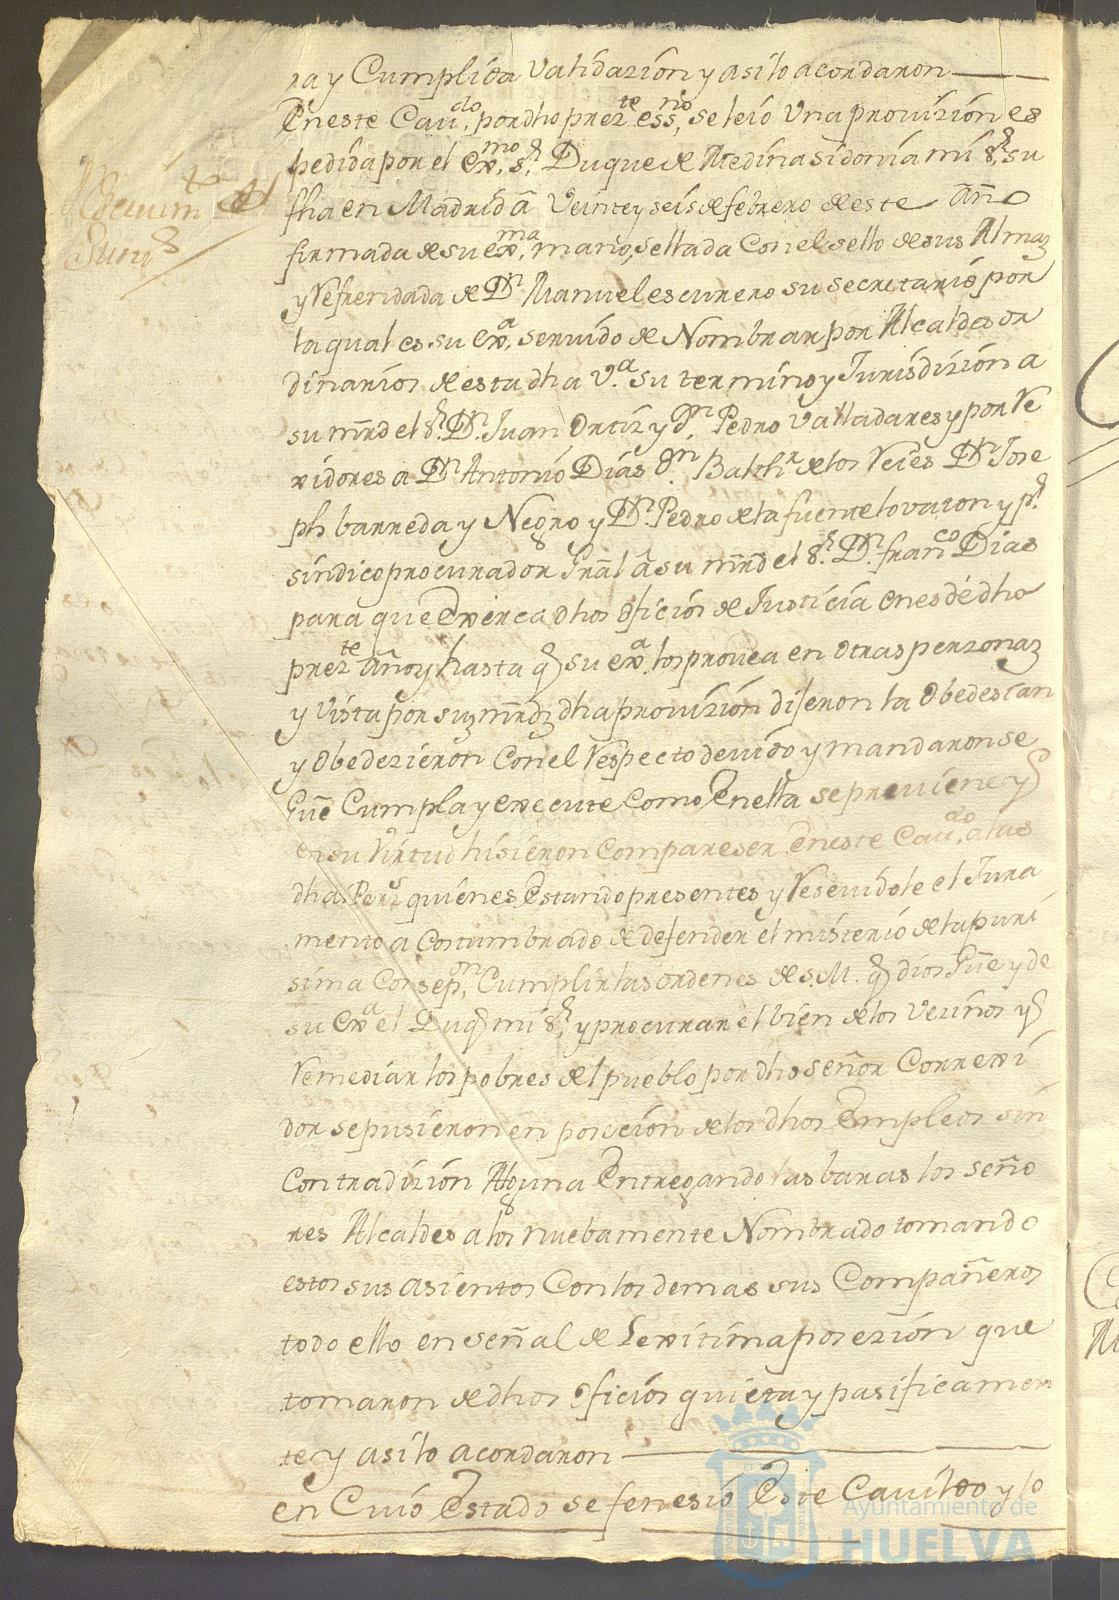 ra y Cumplida Validazion y asi lo acordaron
En este Cavdo, por dho prezte essno, se leió Una provizion es
pedida por el Exmo, sr Duque de Medina sidonia mi sr su
fha en Madrid â Veinte y seis de febrero de este Año
firmada de su exma, mano, sellada con el sello de sus Armaz
y Refrendada de Dn Manuel escurero su secretario por
la qual es su exa, servido de Nombrar por Alcaldes or
dinarios de esta dha va su termino y Jurisdizion a
su mrd el sr Dn Juan Ortiz y Dn Pedro Valladares y por Re
xidores a Dn Antonio Dias Dn Balthr de los Reies Dn Jose
ph barreda y Negro y Dn Pedro de la fuente lovaton y pr
sindico procurador Gral â su mrd el sr Dn franco Dias
para que Exersa dhos ofisios de Justicia en esde dho
prezte Año y hasta q su exa los provea en Otras perzonaz
y Vista por suz mrdz dha provizion dijeron la Obedesian
y Obedezieron con el Respecto devido y mandaron se
Gue Cumpla y execute como En ella se previene y
en su Virtud hisieron Compareser En este Cavdo, a las
dha Pers quienes Estando presentes y Resevidole el Jura
mento a Costumbrado de defender el misterio de la puri
sima Consepon, Cumplir las ordenes de S. M. q dios Gue y de
su exa el Duq mi sr, y procurar el bien de los Vezinos y
Remediar los pobres del pueblo por dho señor Correxi
dor se pusieron en posecion de los dhos Empleos sin
Contradizion Alguna Entregando las baras los seño
res Alcaldes a los nuebamente Nombrado tomando
estos sus asientos Con los demas sus Compañeros
todo ello en señal de Lexitima posezion que
tomaron de dhos ofisios quieta y pasificamen
te y asi lo acordaron
en Cuio Estado se fenesió Este Cavildo y lo
Ayuntamiento de
HUELVA